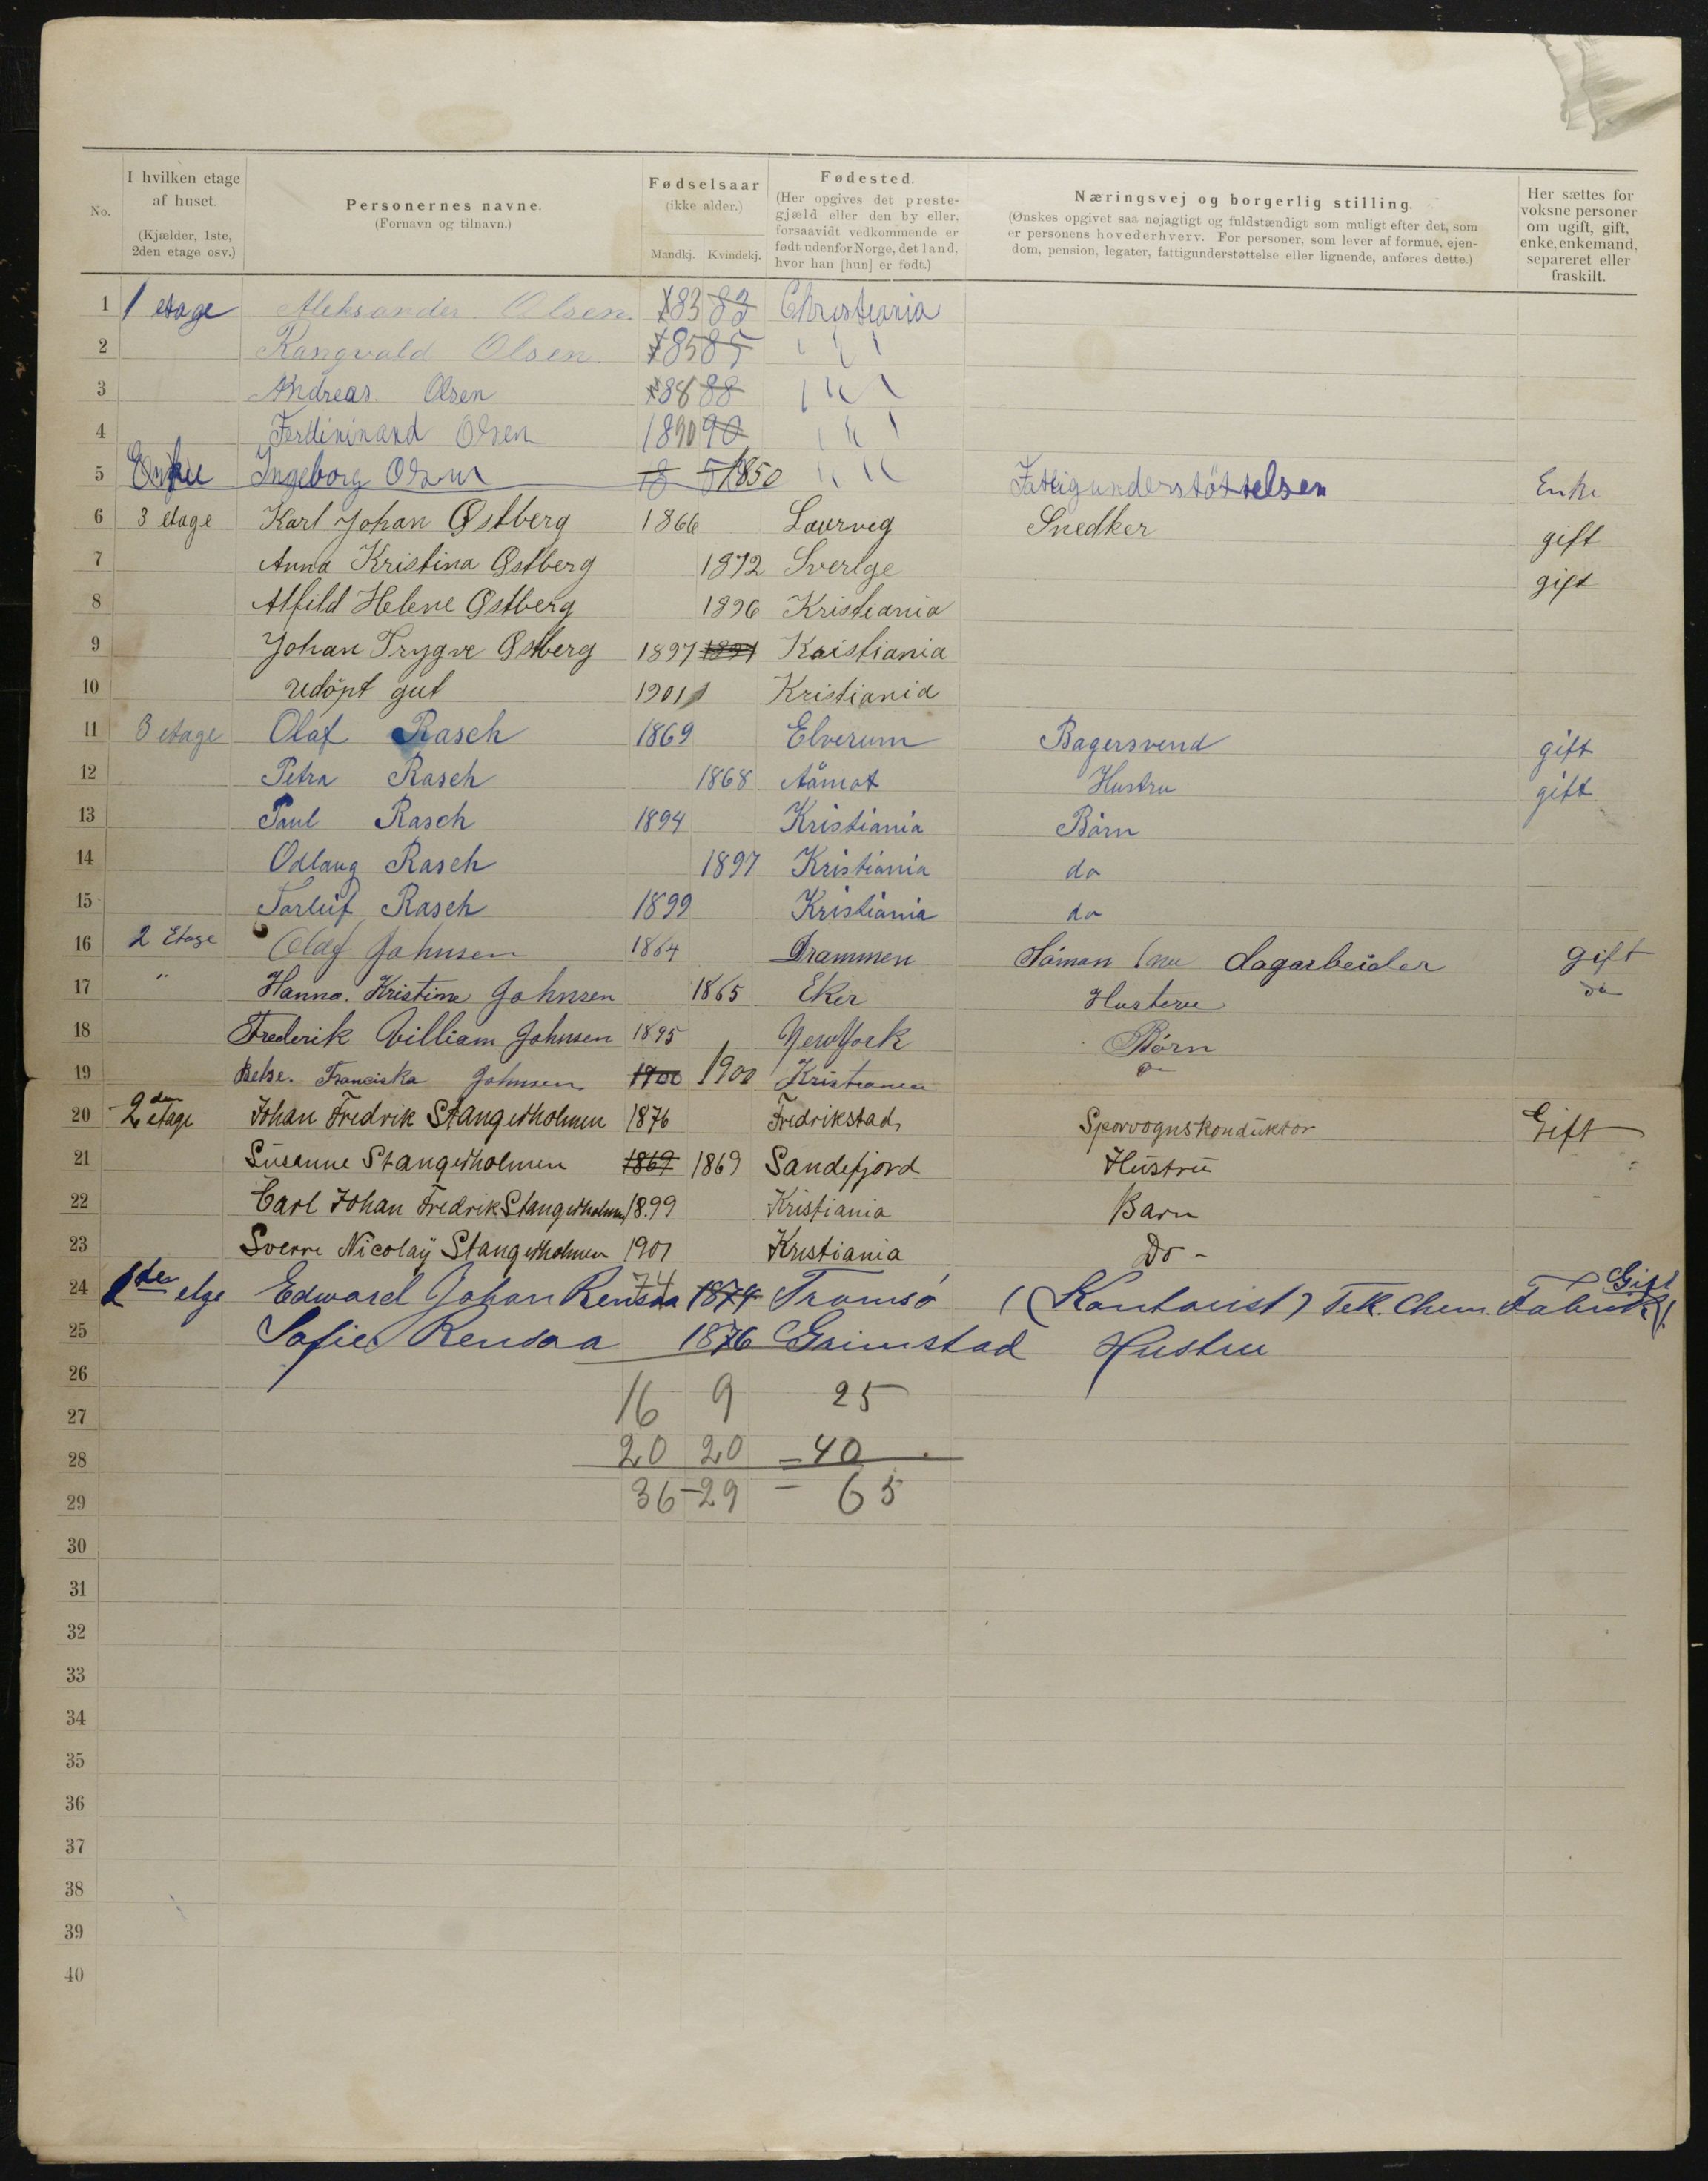 No.
I hvilken etage af huset.
(Kjælder, 1ste, 2den etage osv.)
Personernes navne.
(Fornavn og tilnavn.)
Fødselsaar
(ikke alder.)
Mandkj. Kvindekj.
Fødested.
(Her opgives det prestegjæld eller den by eller, forsaavidt vedkommende er født udenfor Norge, det land, hvor han [hun] er født.)
Næringsvej og borgerlig stilling.
(Ønskes opgivet saa nøjagtigt og fuldstændigt som muligt efter det, som er personens hovederhverv. For personer, som lever af formue, ejendom, pension, legater, fattigunderstøttelse eller lignende, anføres dette.)
Her sættes for voksne personer om ugift, gift, enke, enkemand, separeret eller fraskilt.
1 1 etage Aleksander Olsen. 83 83 Christiania
2 Rangvald Olsen 85 85 " " "
3 Andreas Olsen 88 88 " " "
4 Ferdininand Olsen 1890 90 " " "
5 Enke Ingeborg Olsen 1850 " " Fattigunderstöttelsen Enke
6 3 etage Karl Johan Østberg 1866 Laurvig Snedker gift
7 Anna Kristina Østberg 1872 Sverige gift
8 Alfild Helene Østberg 1896 Kristiania
9 Johan Trygve Østberg 1897 1897 Kristiania
10 Udöpt gut 1901 Kristiania
11 3 etage Olaf Rasch 1869 Elverum Bagersvend gift
12 Petra Rasch 1868 Aåmot Hustru gift
13 Paul Rasch 1894 Kristiania Börn
14 Odlaug Rasch 1897 Kristiania do
15 Torleif Rasch 1899 Kristiania do
16 2 Etage Olaf Johnsen 1864 Drammen Söman (nu dagarbeider gift
17 " Hanna. Kristine Johnsen 1865 Eker Husteru do
18 Frederik William Johnsen 1895 New York Börn
19 Franciska Johnsen 1900 1900 Kristiania do
20 2den etage Johan Fredrik Stangerholmen 1876 Fredrikstad, Sporvognskonduktor Gift
21 Susanne Stangerholmen 1869 1869 Sandefjord Hustru "
22 Carl Johan Fredrik Stangerholmen 1899 Kristiania Barn
23 Sverre Nicolaÿ Stangerholmen 1901 Kristiania Do -
24 1ste etge Edward Johan Rensaa 74 1874 Tromsö (Kontorist) Tek. Chem. Fabrik). Gift
25 Sofie Rensaa 1876 Grimstad Hustru
26
16 9 25
27
20 20 = 40
28
36 - 29 - 65
29
30
31
32
33
34
35
36
37
38
39
40